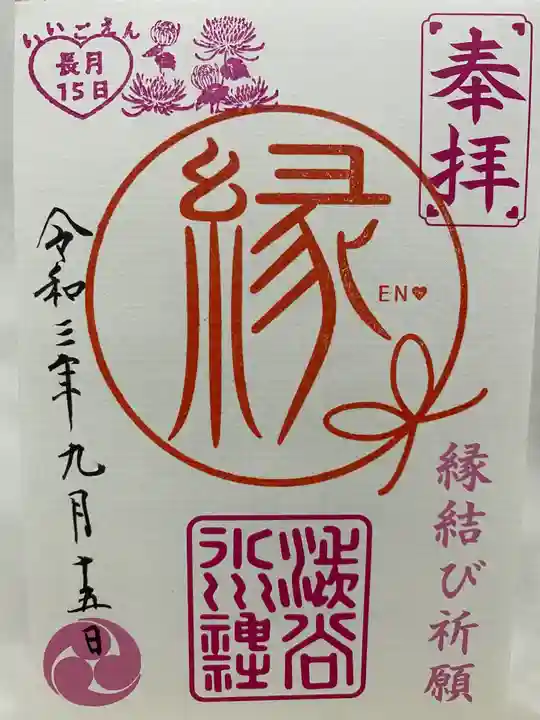 奉拝
いいごえん
長月
15日
縁
EN
縁結び祈願
渋谷
氷川神社
令和三年九月十五日